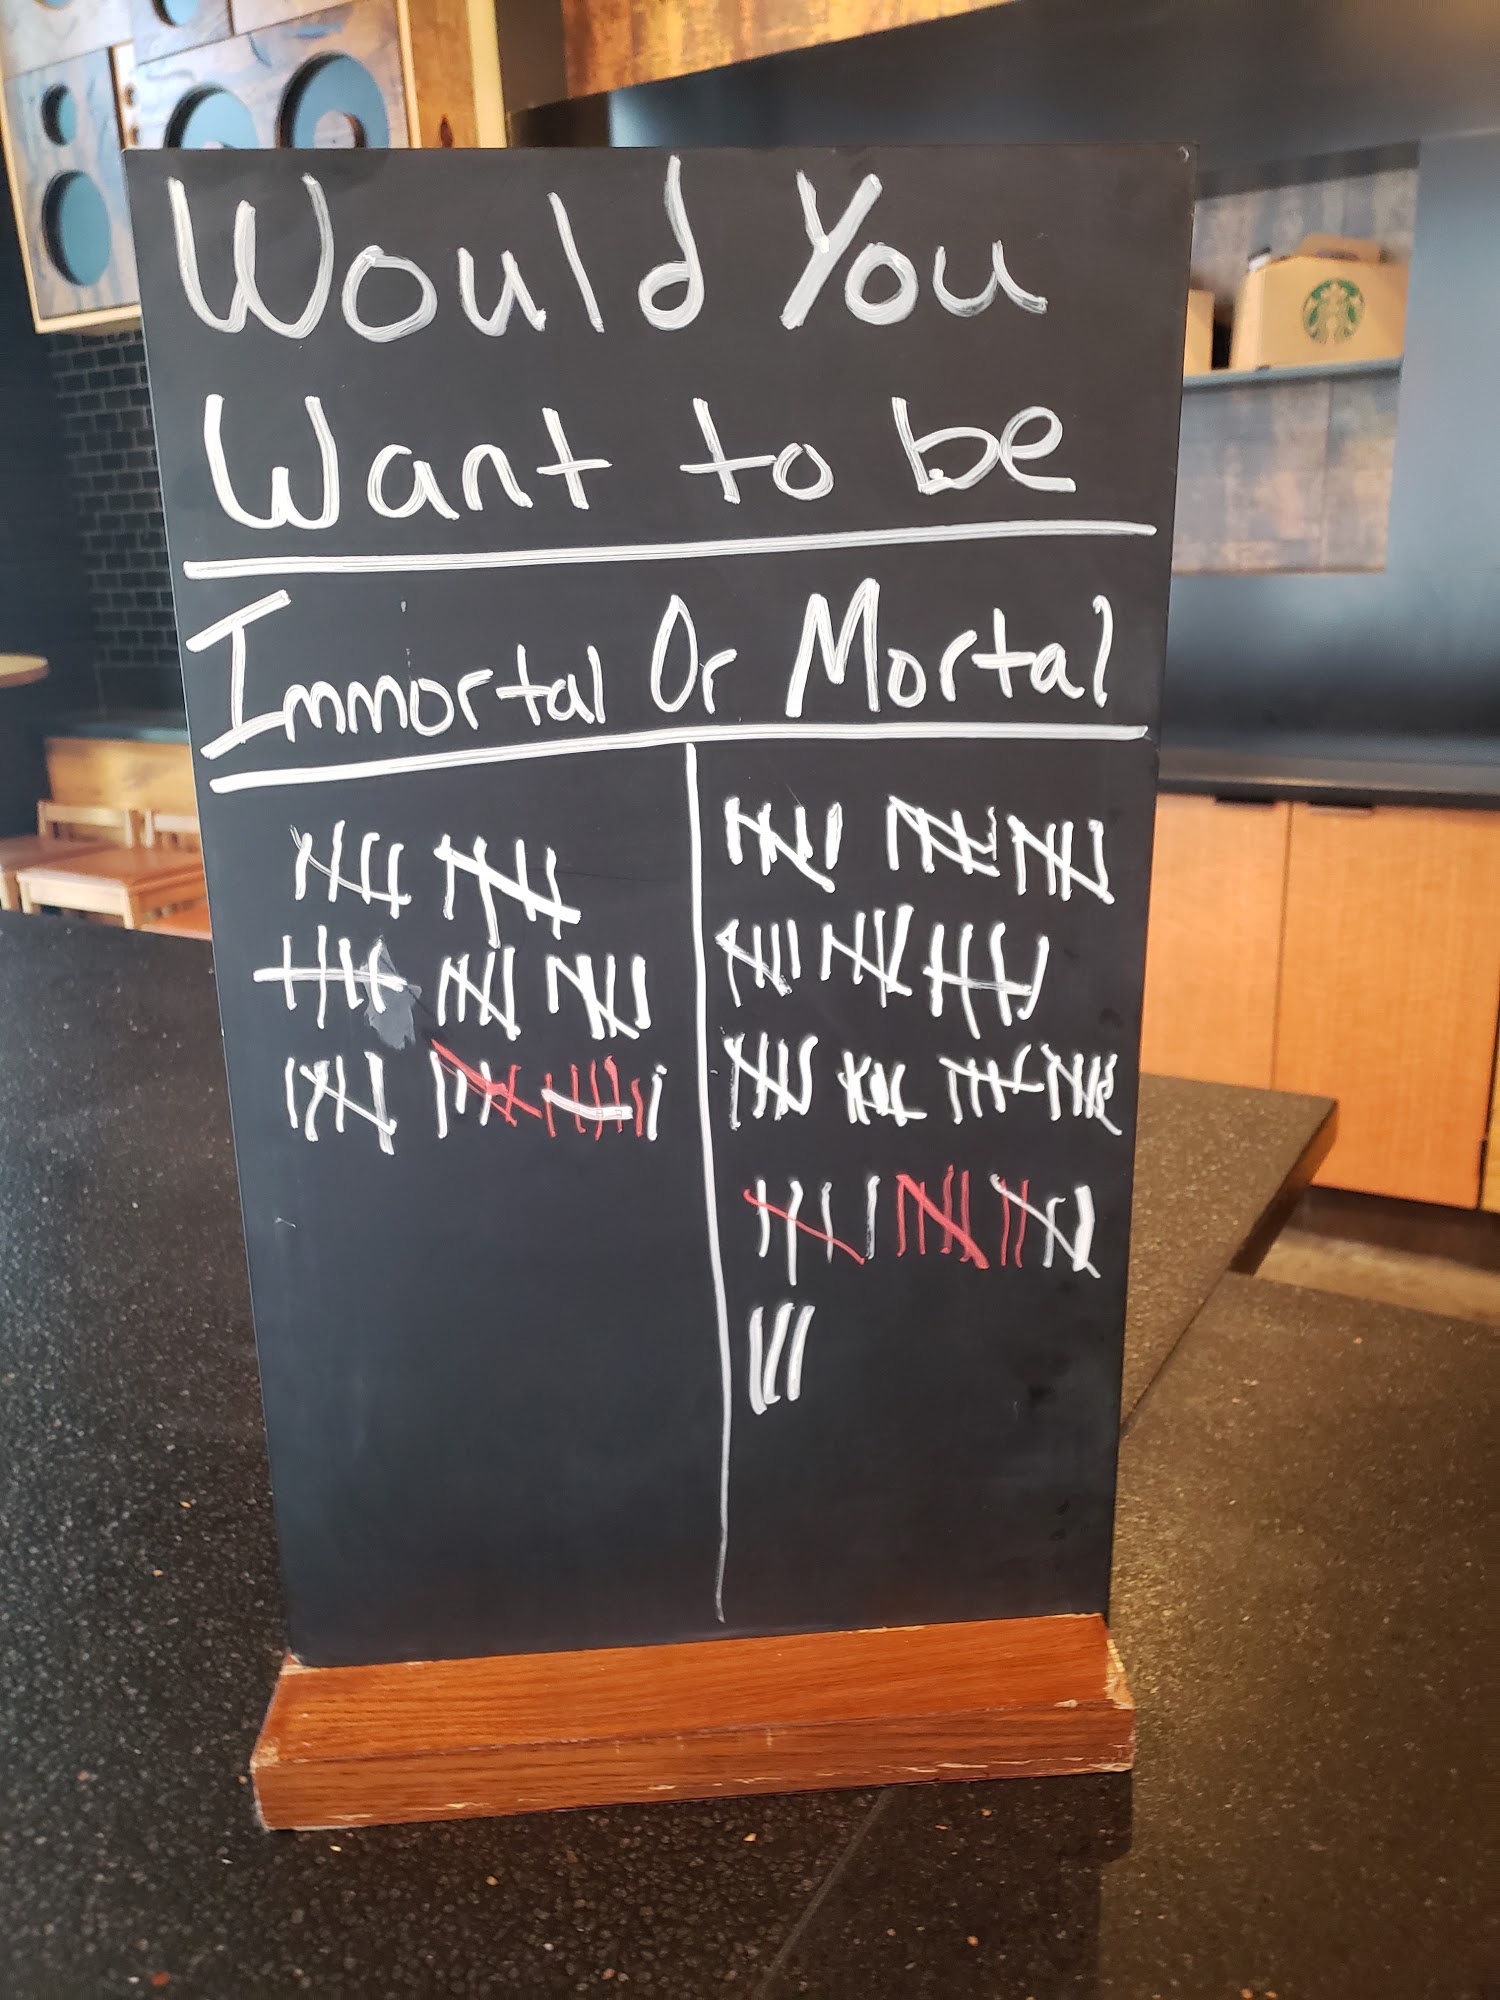 Would You
Want to be
Immortal Or Mortal